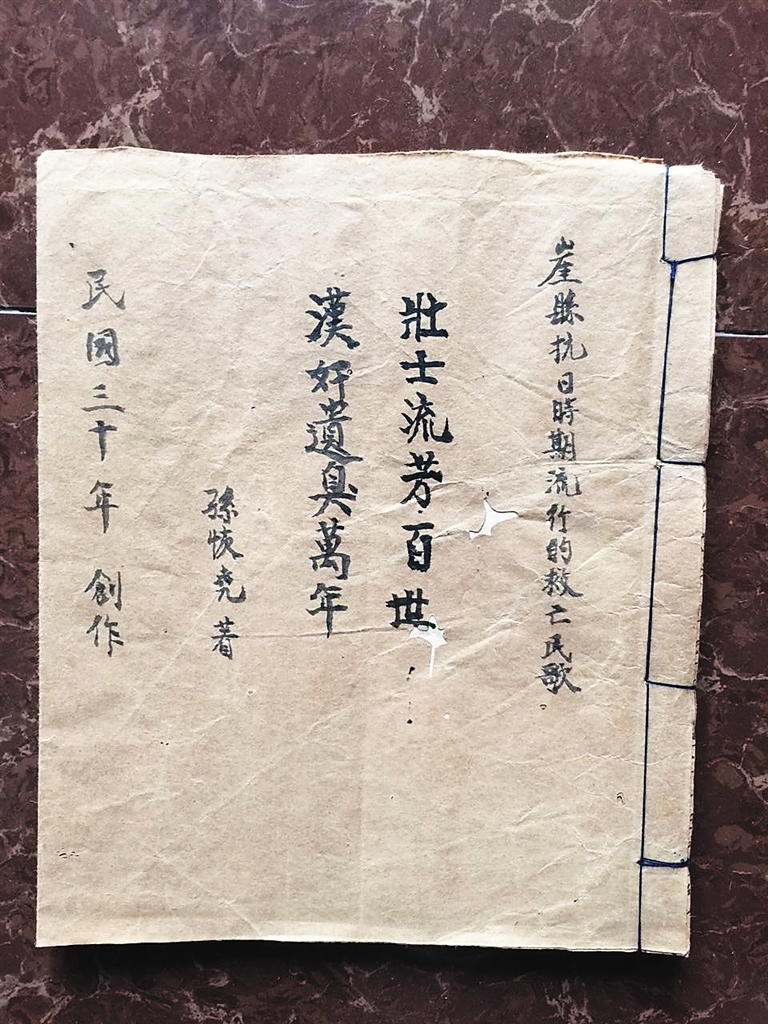 崖縣抗日時期流行的救亡民歌
壯士流芳百世
漢奸遺臭萬年
孫恢堯 著
民國三十年 創作